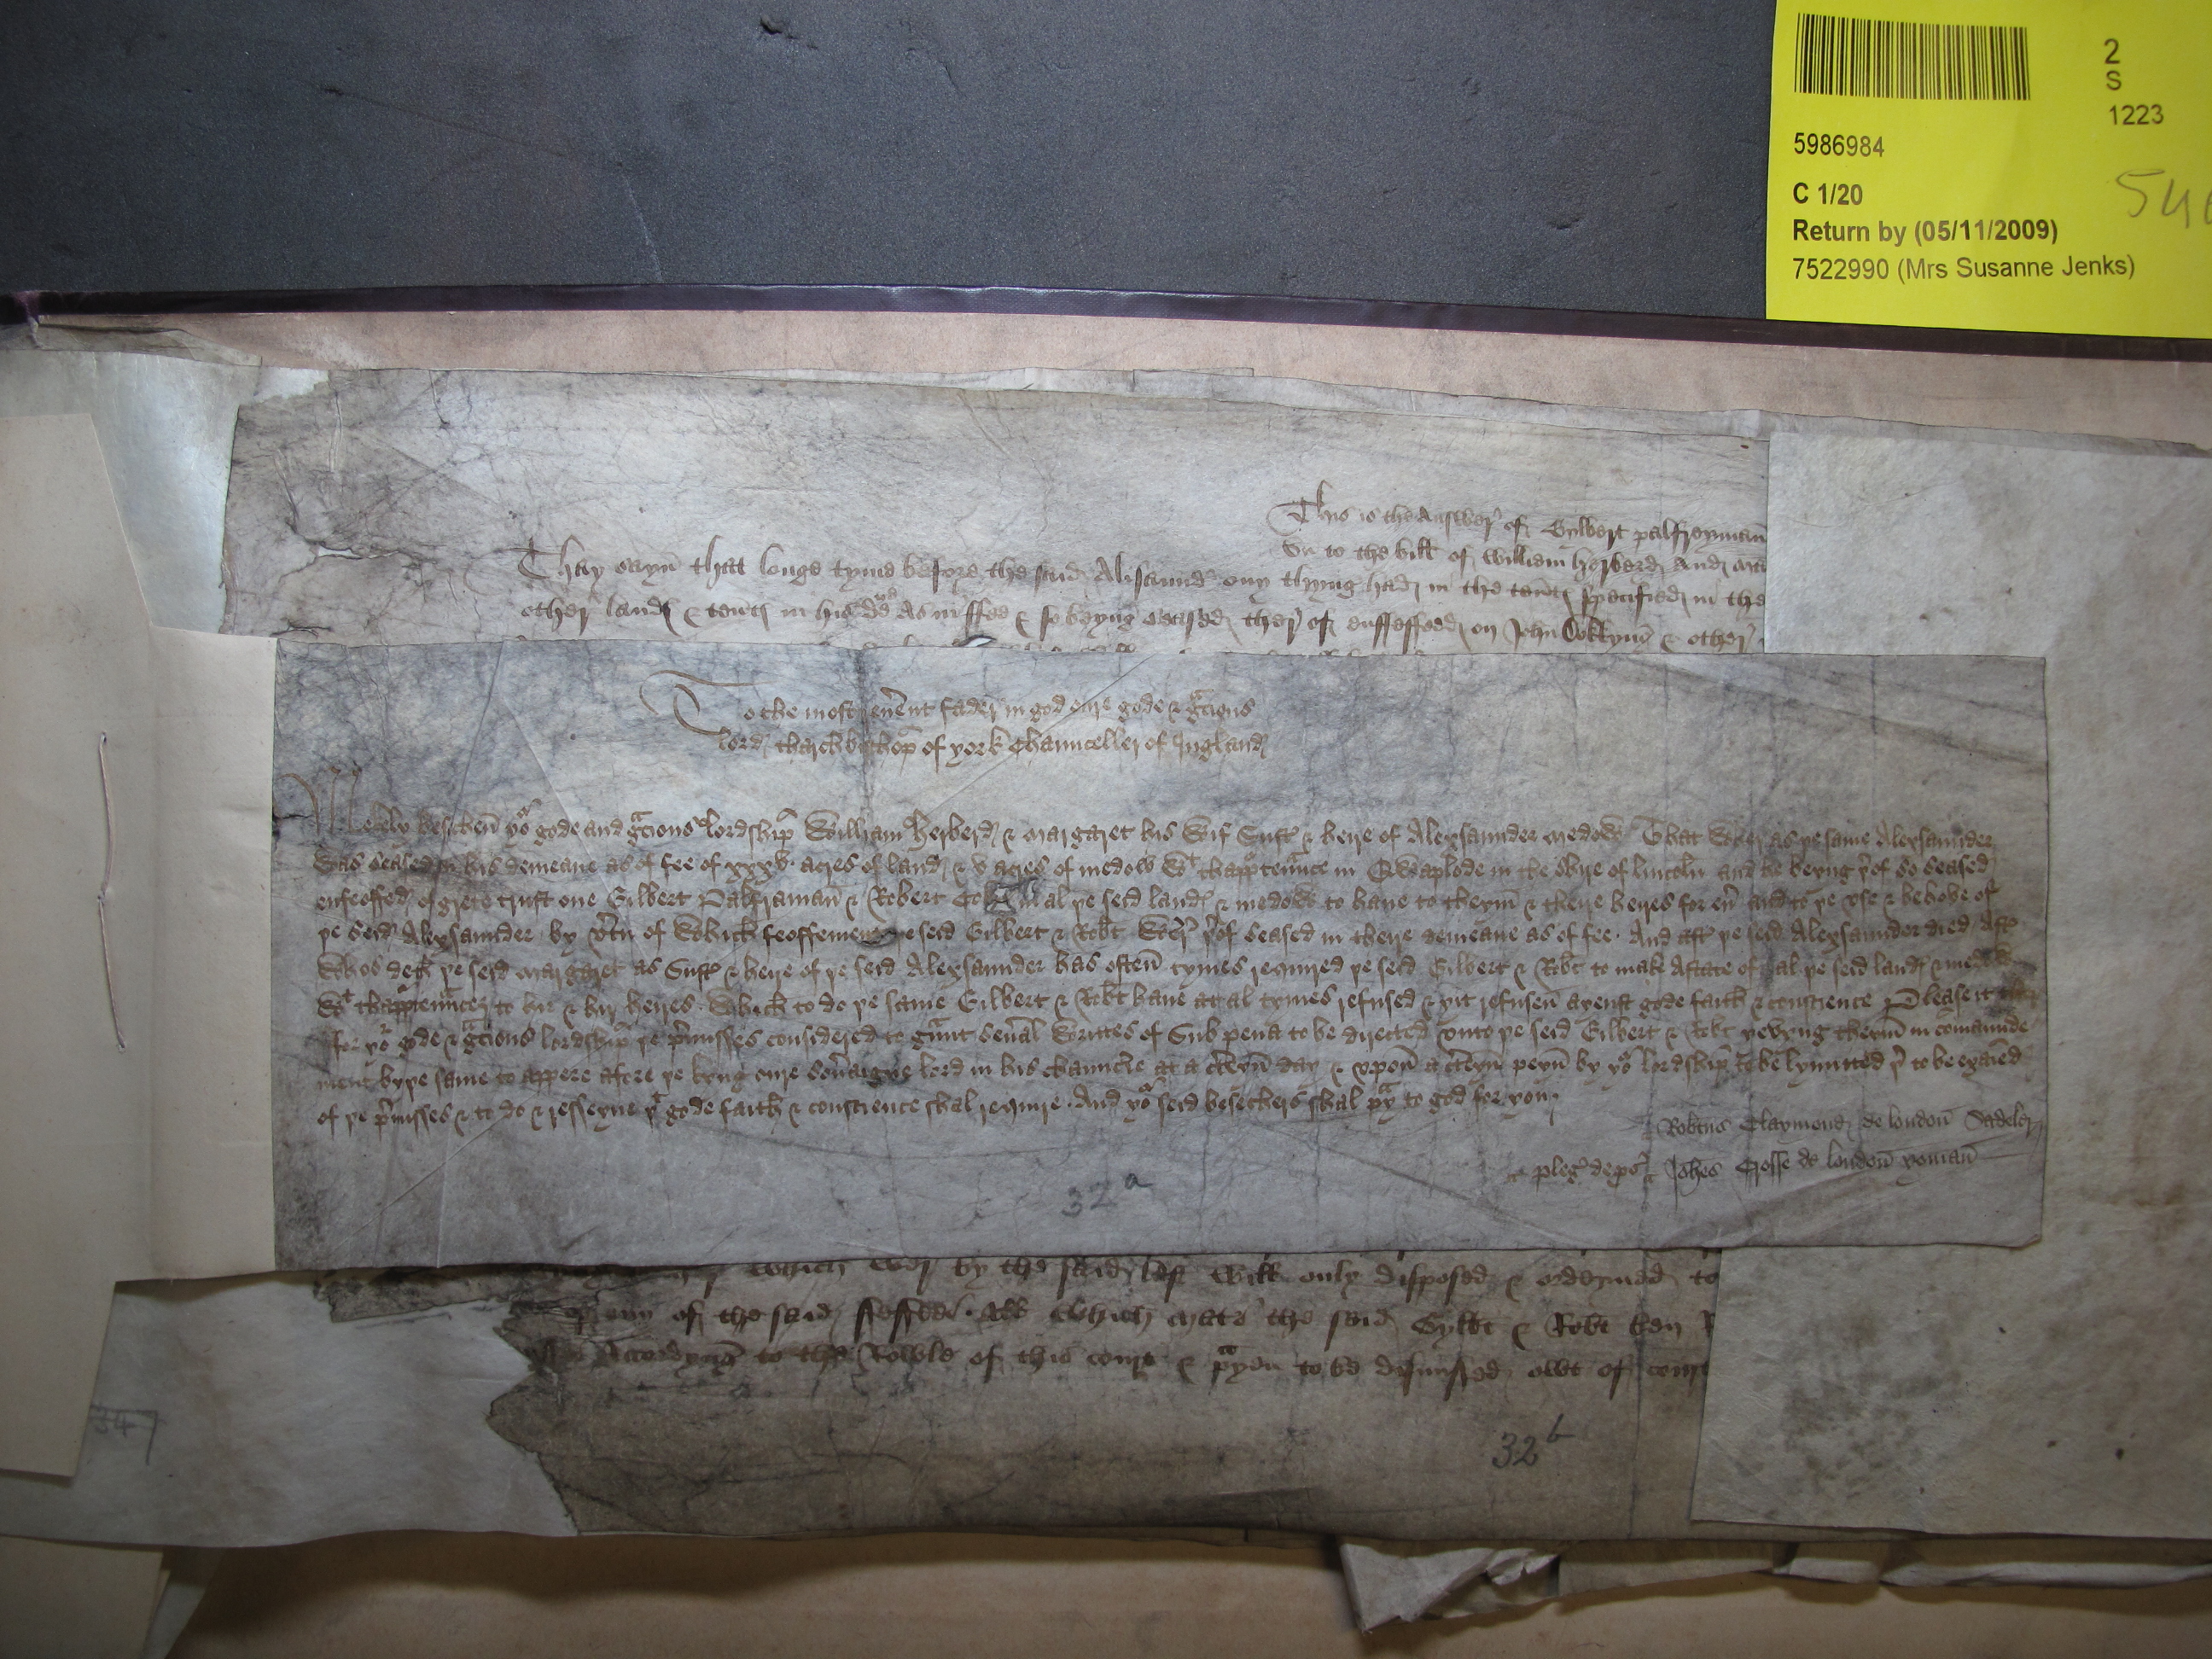 2
S
1223
5986984
C 1/20
Return by (05/11/2009)
7522990 (Mrs Susanne Jenks)
This is the Answer of Gylbert palfreyman
vn to the bill of William Herberd And
Thay sayn that longe tyme before the said Alisaund ony thyng had in the tentes specified in the
other land & tentes in his As in ffee & so beyng seased ther of enffeffed on John & other
To the most reuent fader in god oure gode & gcious
lord tharchbisshop of york Chaunceller of Ingland
Mekely besechen yor gode and gcious lordship William Herberd & Margaret his Wif Sust & heire of Alexsaunder medow That Wher as ye same Alexsaunder
Was seased in his demeane as of fee of xxxv acres of land & v acres of medow wt thapptennce in Qwaplode in the shire of lincoln and he beyng yof so seased
enfeoffed of grete trust one Gilbert Palframan & Robert in al ye seid land & medow to haue to theym & theire heires for eu and to ye vse & behove of
ye seid Alexsaunder by vtu of Which feoffement ye seid Gilbert & Robt Wer yof seased in theire demeane as of fee And aft ye seid Alexsaunder died Aft
Whos deth ye seid margaret as Sust & heire of ye seid Alexsaunder has often tymes required ye seid Gilbert & Robt to make Astate of al ye seid land & medow
Wt thapptennce to hir & hir heires Which to do ye same Gilbert & Robt haue at al tymes refused & yit refusen ayenst gode faith & conscience Please it
for yor gode & gcious lordship ye pmisses considered to gunt seual Writtes of Sub pena to be directed vnto ye seid Gilbert & Robt yevyng theym in comaunde
ment by ye same to appere afore ye kyng oure souaigne lord in his chauncre at a cteyn day & vpon a cteyn peyn by yor lordship to be lymitted y to be exaied
of ye pmisses & to do & resseyue yt gode faith & conscience shal require And yor seid besechers shal pay to god for you
Robtus Claymond de london Sadeler
pleg de ps Johes Crosse de london yoman
32 a
which wer by the said last Will only disposed & ordeyned to
of the said feffees All which mate the said Gylbt & Robt ben
Accordyng to the Rowle of this court & payen to be dismissed owt of court
32 b
347